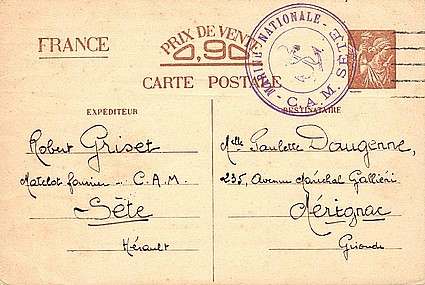 FRANCE
PRIX DE VENTE
0,90
CARTE POSTALE
MARINE-NATIONALE-
SETE
-C.A.M.-
EXPÉDITEUR
Robert Griset
Matelot fourrier - C.A.M.
Sète
Hérault
DESTINATAIRE
Melle Paulette Daugenne,
235, Avenue Maréchal Galliéni
Mérignac
Gironde